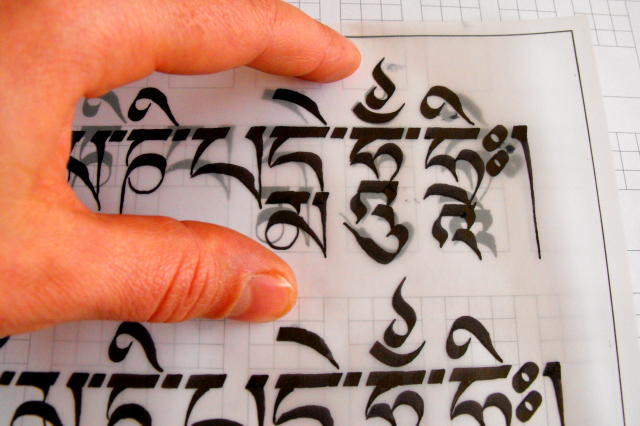 མ་ཎི་པདྨེ་ཧཱུྃ་ཧྲཱིཿ།
མ་ཎི་པདྨེ་ཧཱུྃ་ཧྲཱིཿ།